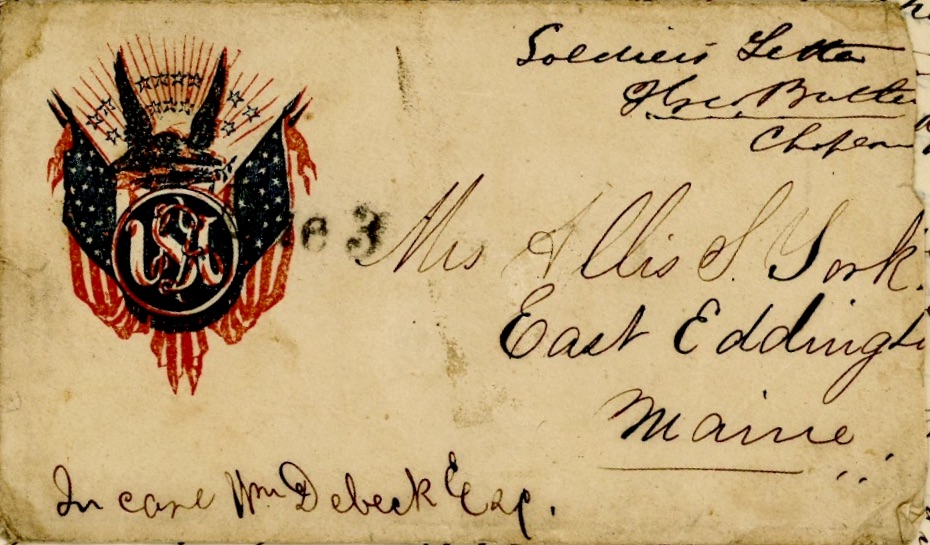 Soldiers Letter
Chaplain
USA
Due 3
Mrs Allis S. York.
East Eddingt
Maine
In care Wm Debeck Esq.